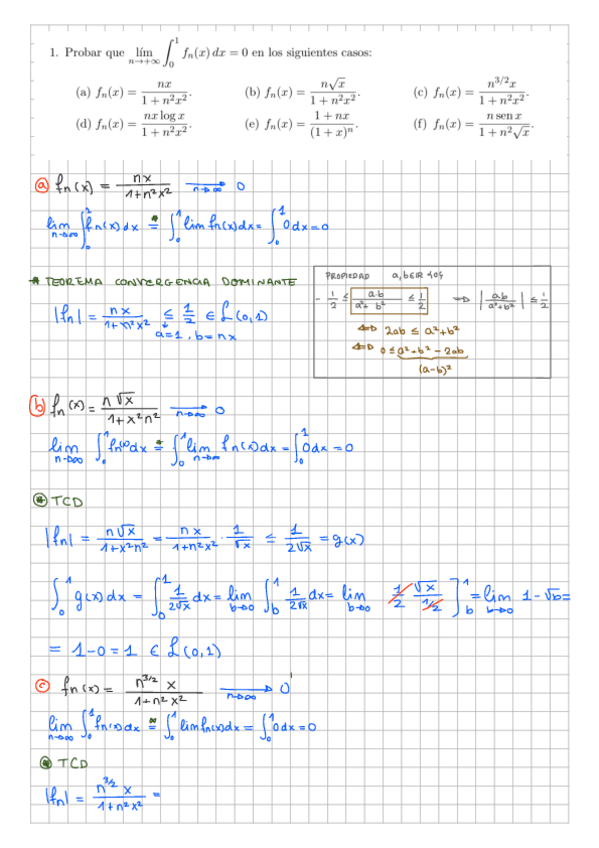 1. Probar que lím_{n→+∞} ∫_0^1 f_n(x) dx = 0 en los siguientes casos:
(a) f_n(x) = nx/(1 + n²x²). (b) f_n(x) = n√x/(1 + n²x²). (c) f_n(x) = n^{3/2}x/(1 + n²x²).
(d) f_n(x) = nx log x/(1 + n²x²). (e) f_n(x) = (1 + nx)/(1 + x)^n. (f) f_n(x) = n sen x/(1 + n²√x).
ⓐ f_n(x) = nx/(1+n²x²) →_{n→∞} 0
lim_{n→∞} ∫_0^1 f_n(x)dx *= ∫_0^1 lim f_n(x)dx = ∫_0^1 0dx = 0
* TEOREMA CONVERGENCIA DOMINANTE
|f_n| = nx/(1+n²x²) ≤ 1/2 ∈ L(0,1)
a=1, b=nx
PROPIEDAD a,b∈ℝ\{0}
-1/2 ≤ ab/(a²+b²) ≤ 1/2 ⇒ |ab/(a²+b²)| ≤ 1/2
⇔ 2ab ≤ a²+b²
⇔ 0 ≤ a²+b²-2ab
(a-b)²
ⓑ f_n(x) = n√x/(1+x²n²) →_{n→∞} 0
lim_{n→∞} ∫_0^1 f_n(x)dx *= ∫_0^1 lim_{n→∞} f_n(x)dx = ∫_0^1 0dx = 0
⊛ TCD
|f_n| = n√x/(1+x²n²) = nx/(1+n²x²) · 1/√x ≤ 1/(2√x) = g(x)
∫_0^1 g(x)dx = ∫_0^1 1/(2√x) dx = lim_{b→0} ∫_b^1 1/(2√x) dx = lim_{b→0} 1/2 √x/(1/2) ]_b^1 = lim_{b→0} 1-√b =
= 1-0 = 1 ∈ L(0,1)
ⓒ f_n(x) = n^{3/2} x/(1+n²x²) →_{n→∞} 0
lim_{n→∞} ∫_0^1 f_n(x)dx ⊛= ∫_0^1 lim f_n(x)dx = ∫_0^1 0dx = 0
⊛ TCD
|f_n| = n^{3/2} x/(1+n²x²) =